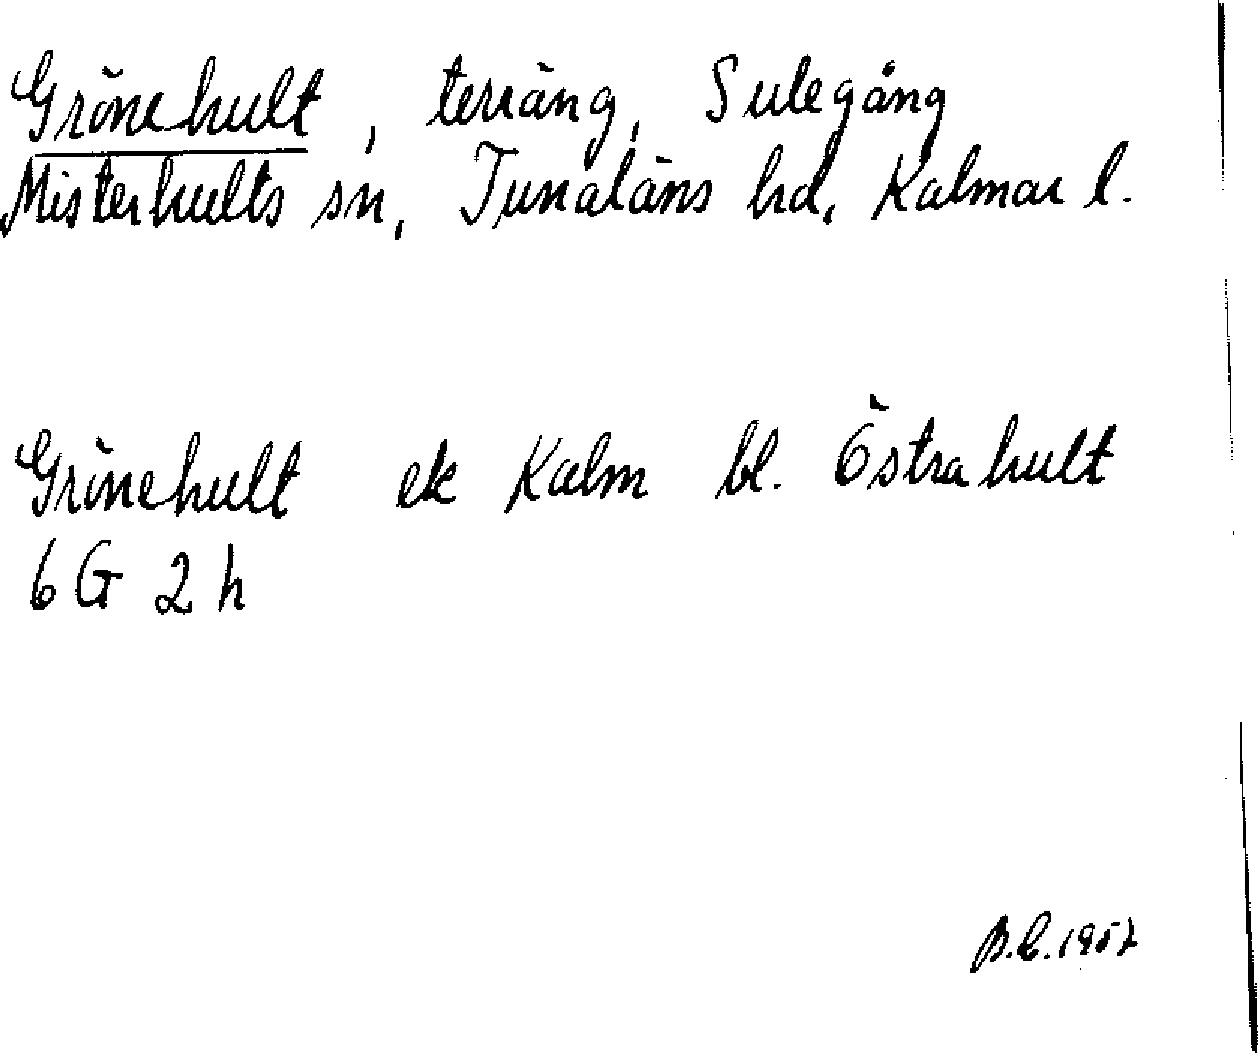 Grönehult, terräng, Sulegång
Misterhults sn, Tunaläns hd, Kalmar l.
Grönehult ek Kalm bl. Östrahult
6 G 2 h
B.C. 1957